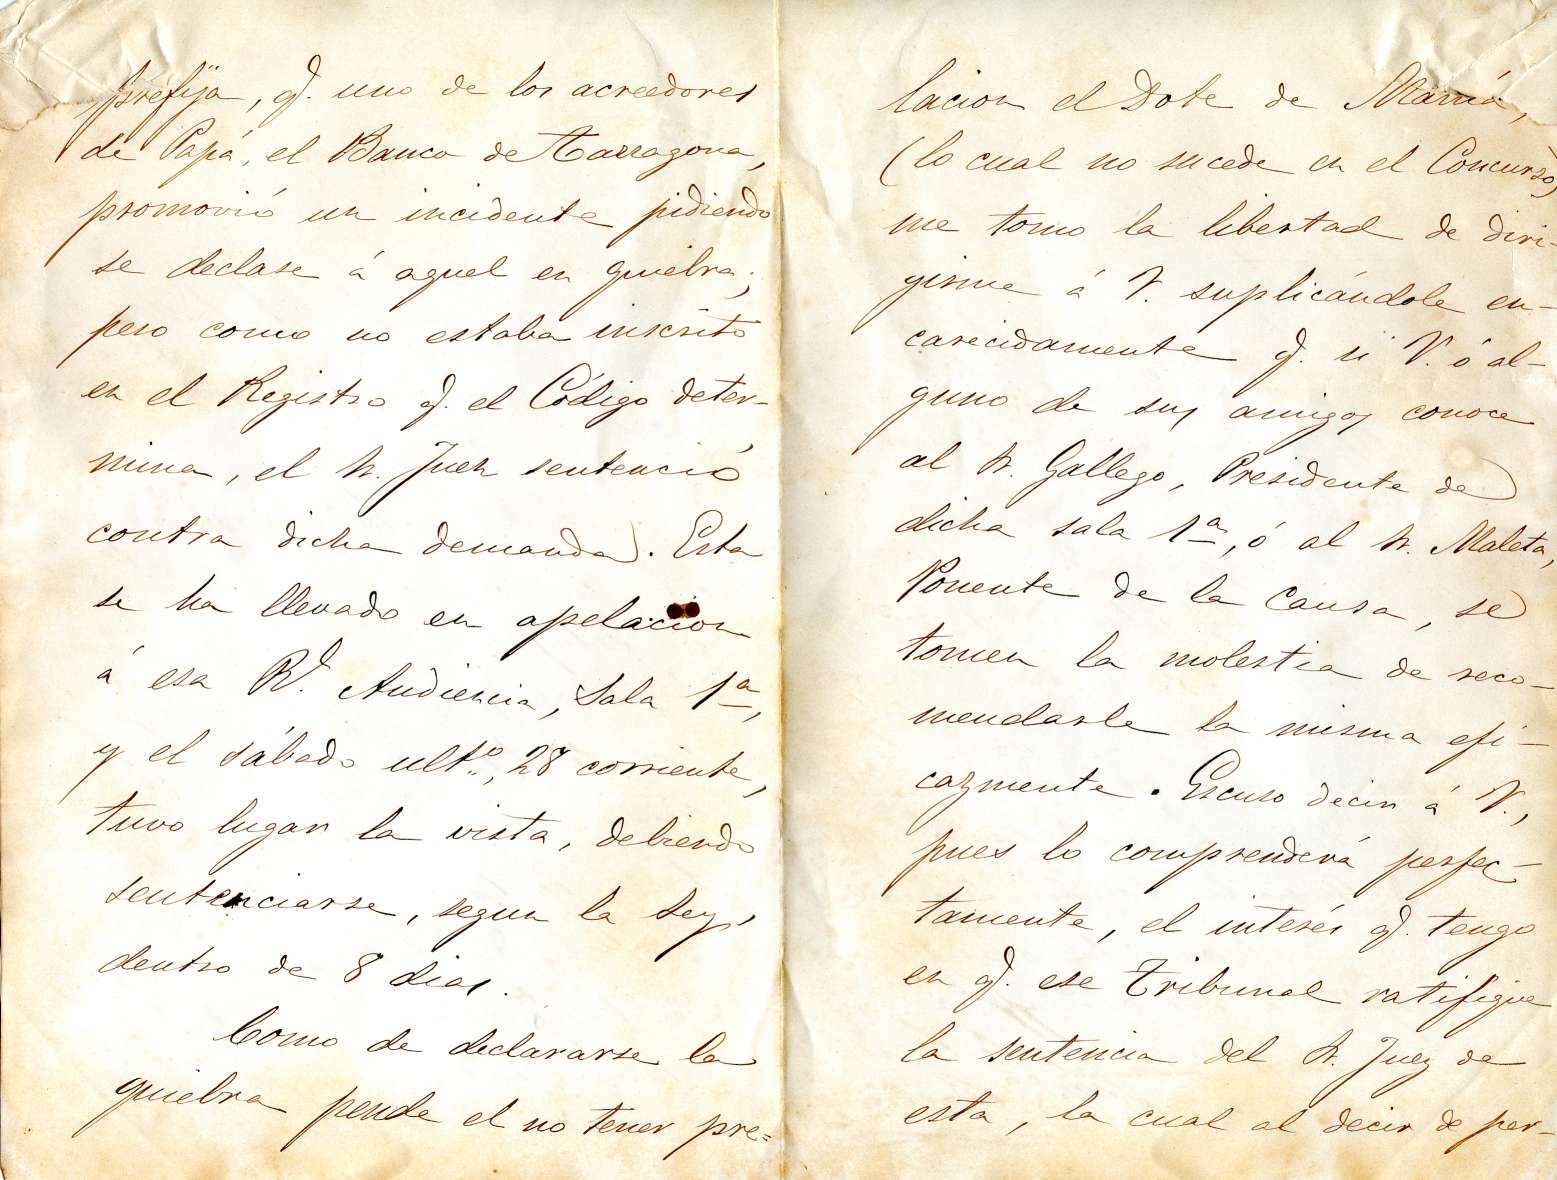 prefija, q. uno de los acreedores
de Papá, el Banco de Tarragona,
promovió un incidente pidiendo
se declase á aquel en quiebra;
pero como no estaba inscrito
en el Registro q. el Código deter-
mina, el Sr. Juez sentenció
contra dicha demanda. Esta
se ha llevado en apelacion
á esa Rl. Audiencia, Sala 1ª,
y el sábado ultº, 28 corriente,
tuvo lugar la vista, debiendo
sentenciarse, segun la Ley,
dentro de 8 dias.
Como de declararse la
quiebra pende el no tener pre=
lacion el Dote de Mamá,
(lo cual no sucede en el Concurso)
me tomo la libertad de diri-
girme á V. suplicándole en-
carecidamente q. si V. ó al-
guno de sus amigos conoce
al Sr. Gallego, Presidente de
dicha sala 1ª, ó al Sr. Maleta,
Ponente de la Causa, se
tomen la molestia de reco-
mendarle la misma efi-
cazmente. Escuso decir á V.,
pues lo comprenderá perfec-
tamente, el interés q. tengo
en q. ese Tribunal ratifique
la sentencia del Sr. Juez de
esta, la cual al decir de per-